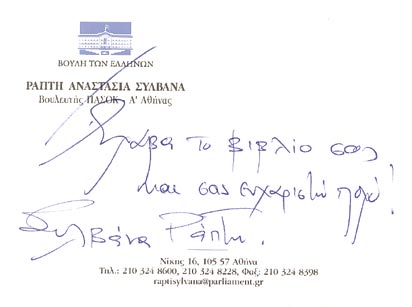 ΒΟΥΛΗ ΤΩΝ ΕΛΛΗΝΩΝ
ΡΑΠΤΗ ΑΝΑΣΤΑΣΙΑ ΣΥΛΒΑΝΑ
Βουλευτής ΠΑΣΟΚ - Α' Αθήνας
Έλαβα το βιβλίο σας
και σας ευχαριστώ πολύ!
Συλβάνα Ράπτη.
Νίκης 16, 105 57 Αθήνα
Τηλ.: 210 324 8600, 210 324 8228, Φαξ: 210 324 8398
raptisylvana@parliament.gr